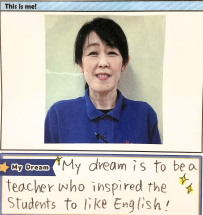 This is me!
My Dream
"My dream is to be a
teacher who inspired the
students to like English!